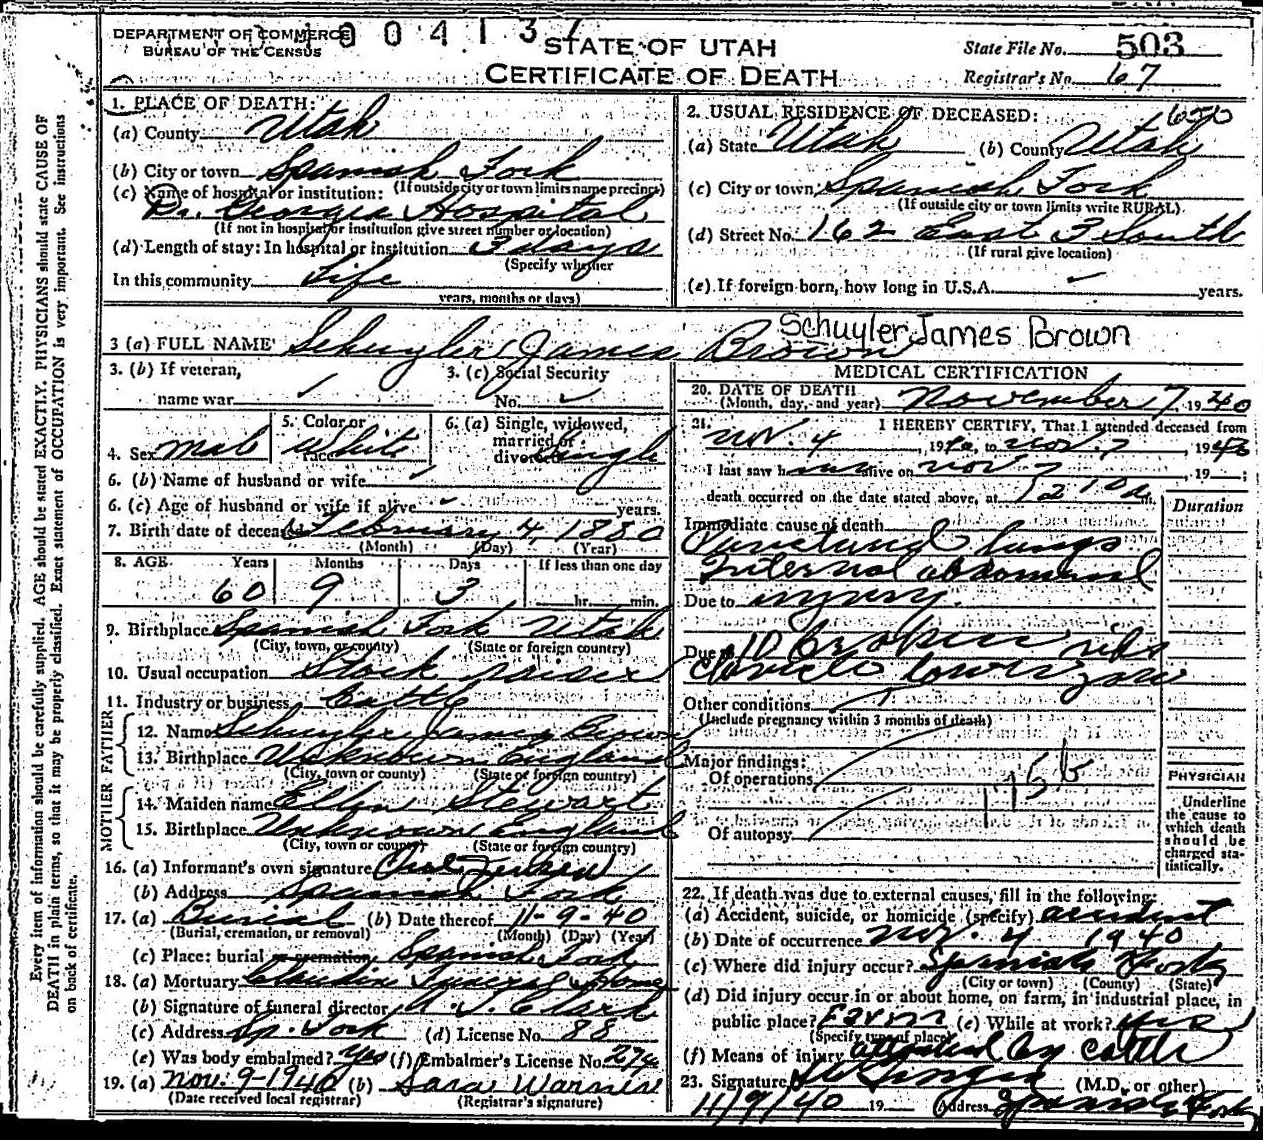 DEPARTMENT OF COMMERCE
BUREAU OF THE CENSUS
004137
STATE OF UTAH
CERTIFICATE OF DEATH
State File No. 503
Registrar's No. 67
1. PLACE OF DEATH:
(a) County Utah
(b) City or town Spanish Fork
(If outside city or town limits name precinct)
(c) Name of hospital or institution:
Hospital
(If not in hospital or institution give street number or location)
(d) Length of stay: In hospital or institution 3 days
(Specify whether
In this community Life
years, months or days)
2. USUAL RESIDENCE OF DECEASED:
(a) State Utah (b) County Utah
(c) City or town Spanish Fork
(If outside city or town limits write RURAL)
(d) Street No. 162 East 3 South
(If rural give location)
(e) If foreign born, how long in U.S.A. years.
3 (a) FULL NAME Schuyler James Brown
Schuyler James Brown
3. (b) If veteran,
name war
3. (c) Social Security
No.
4. Sex Male
5. Color or
race White
6. (a) Single, widowed,
married or
divorced Single
6. (b) Name of husband or wife
6. (c) Age of husband or wife if alive years.
7. Birth date of deceased February 4, 1880
(Month) (Day) (Year)
8. AGE Years Months Days If less than one day
60 9 3 hr. min.
9. Birthplace Spanish Fork Utah
(City, town, or county) (State or foreign country)
10. Usual occupation Stock raiser
11. Industry or business Cattle
FATHER
12. Name Schuyler James Brown
13. Birthplace Unknown England
(City, town or county) (State or foreign country)
MOTHER
14. Maiden name Ellen Stewart
15. Birthplace Unknown England
(City, town or county) (State or foreign country)
16. (a) Informant's own signature
(b) Address Spanish Fork
17. (a) Burial (b) Date thereof 11-9-40
(Burial, cremation, or removal) (Month) (Day) (Year)
(c) Place: burial or cremation Spanish Fork
18. (a) Mortuary Claudin Funeral Home
(b) Signature of funeral director A. J. Clark
(c) Address Sp. Fork (d) License No. 88
(e) Was body embalmed? Yes (f) Embalmer's License No. 274
19. (a) Nov. 9-1940 (b) Sara Warner
(Date received local registrar) (Registrar's signature)
MEDICAL CERTIFICATION
20. DATE OF DEATH
(Month, day, and year) November 7, 1940
21. I HEREBY CERTIFY, That I attended deceased from
Nov. 4, 1940, to Nov. 7, 1940
I last saw him alive on Nov 7, 19 ;
death occurred on the date stated above, at m.
Duration
Immediate cause of death
Punctured lungs
Internal abdominal
Due to injury.
Due to 10 broken ribs
Other conditions
(Include pregnancy within 3 months of death)
Major findings:
Of operations
Of autopsy
PHYSICIAN
Underline
the cause to
which death
should be
charged sta-
tistically.
22. If death was due to external causes, fill in the following:
(a) Accident, suicide, or homicide (specify) accident
(b) Date of occurrence Nov. 4 1940
(c) Where did injury occur? Spanish Fork
(City or town) (County) (State)
(d) Did injury occur in or about home, on farm, in industrial place, in
public place? Farm (e) While at work? yes
(Specify type of place)
(f) Means of injury by cattle
23. Signature (M.D. or other)
11/9/40 19 Address Spanish Fork
Every item of information should be carefully supplied. AGE should be stated EXACTLY. PHYSICIANS should state CAUSE OF
DEATH in plain terms, so that it may be properly classified. Exact statement of OCCUPATION is very important. See instructions
on back of certificate.